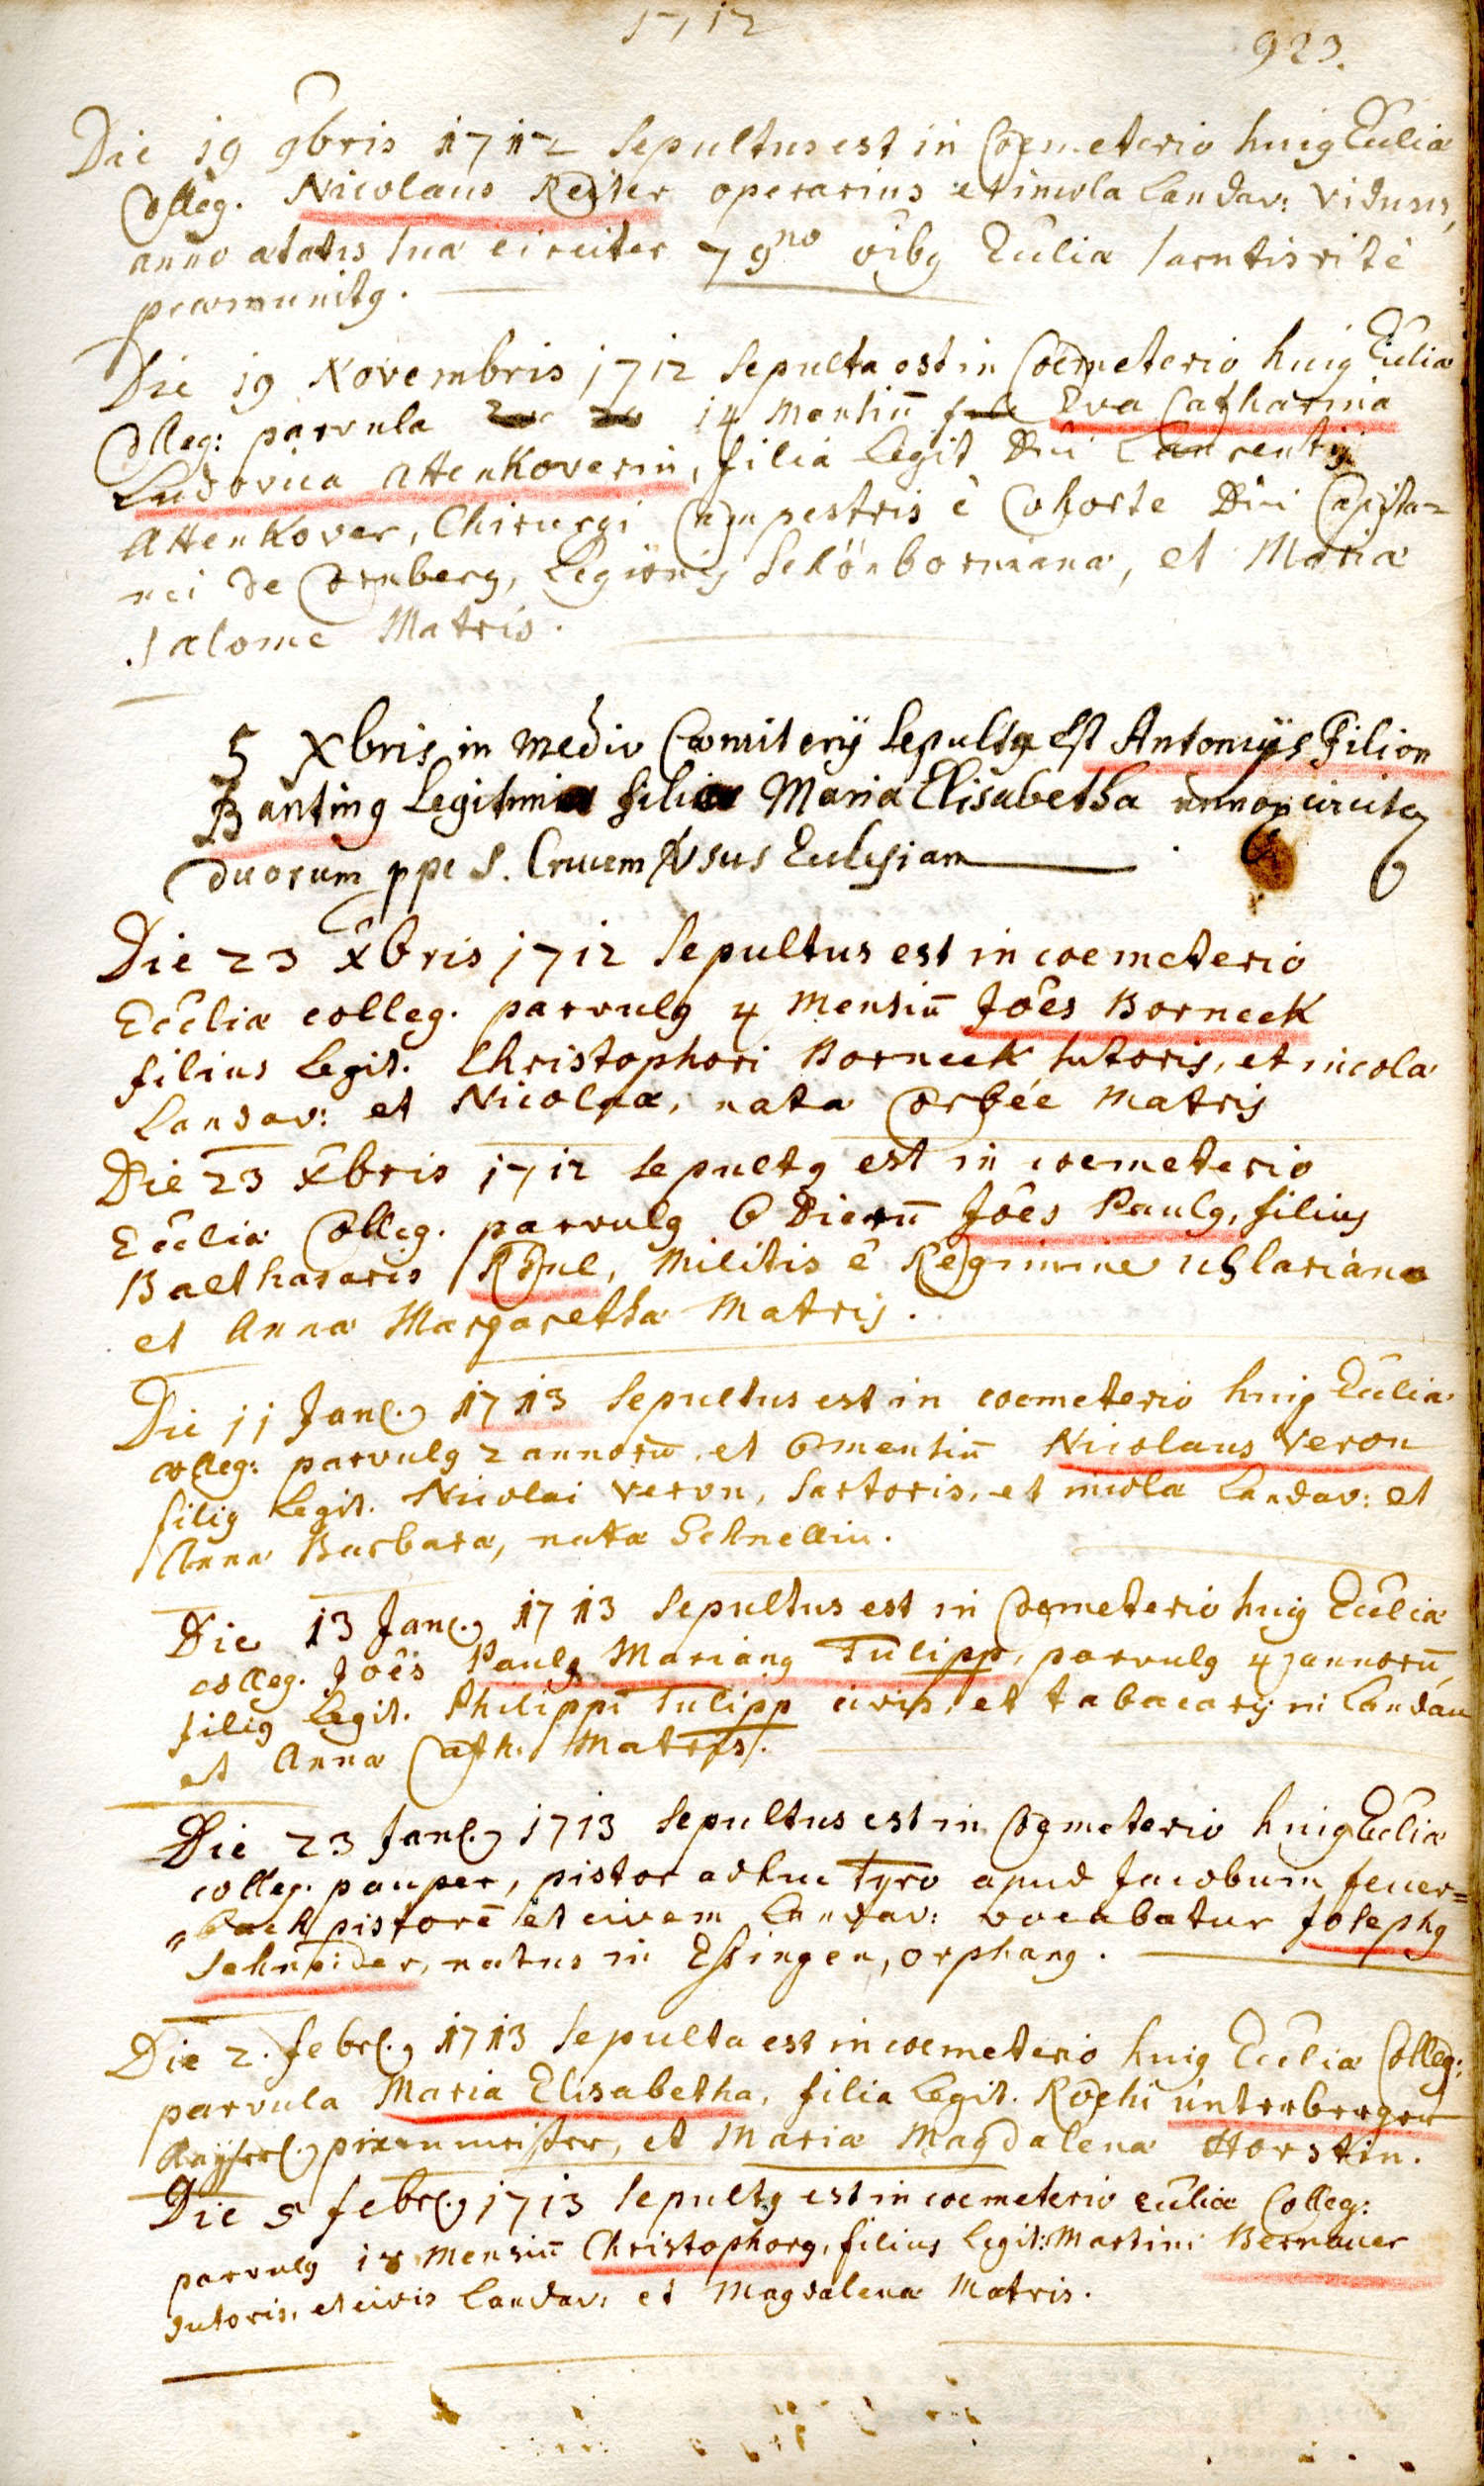 1712
923.
Die 19 9bris 1712 Sepultus est in Coemeterio huig Eccliæ
Colleg. Nicolaus Reiter operarius et incola Landav: Viduus,
anno ætatis suæ circiter 79no oibg Eccliæ sacrntis ritè
præmunitg.
Die 19 Novembris 1712 Sepulta est in Coemeterio huig Eccliæ
Colleg: parvula 14 Mensiū Eva Catharina
Ludovica Attenkoverin, filia Legit Dni Laurentij
Attenkover, Chirurgi Campestris è Cohorte Dni Capita=
nei de Cornberg, Legionis Schönborniana, et Maria
Salome Matris.
5 Xbris in medio Cœmiterij Sepultg est Antonijs Filion
Banting Legitimi filiæ Maria Elisabetha circiter
duorum ppe S. Crucem Vsus Eccleyiam
Die 23 Xbris 1712 Sepultus est in coemeterio
Eccliæ colleg. parvulg 4 Mensiū Joês Borneck
filius Legit. Christophori Borneck sutoris, et incola
Landav: et Nicolææ, nata Corbée Matris
Die 23 Xbris 1712 Sepultg est in coemeterio
Eccliæ Colleg. parvulg 6 Dierū Joês Paulg, filius
Balthasaris Röul, Militis è Regimine Uhlariano
et Anna Margaretha Matris.
Die 11 Jan. 1713 Sepultus est in coemeterio huig Eccliæ
colleg: parvulg 2 annorū et 6 mensiū Nicolaus Veron
filig Legit. Nicolai Veron, Sartoris, et incola Landav: et
Anna Barbara, nata Schnellin.
Die 13 Jan. 1713 Sepultus est in Coemeterio huig Eccliæ
colleg. Joês Paulg Mariang Tulipp, parvulg 4 annorū,
filig Legit. Philippi Tulipp civis, et tabacarij in Landau
et Anna Cath. Matris.
Die 23 Jan. 1713 Sepultus est in Coemeterio huig Eccliæ
colleg. pauper, pistor adhuc Tyro apud Jacobum feuer=
=bach pistorē et civem Landav: vocabatur Josephg
Schneider, natus in Essingen, orphang.
Die 2. febr. 1713 Sepulta est in coemeterio huig Eccliæ Colleg:
parvula Maria Elisabetha, filia Legit. Rochi Unterberger
Kayserl. pixenmeister, et Maria Magdalena Horstin.
Die 5 febr. 1713 Sepultg est in coemeterio eccliæ Colleg:
parvulg 18 Mensiū Christophorg, filius Legit: Martini Bernauer
sutoris, et civis Landav: et Magdalena Matris.